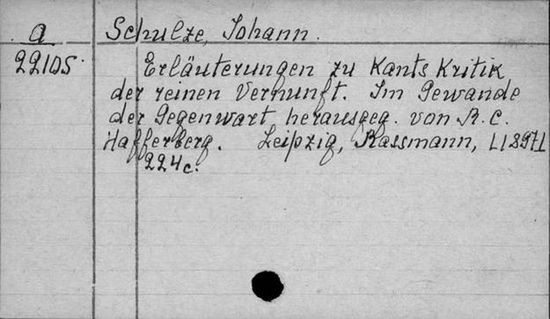 a Schulze, Johann.
22105 Erläuterungen zu Kants Kritik
der reinen Vernunft. Im Gewande
der Gegenwart herausgeg. von R. C.
Hafferberg. Leipzig, Rassmann, [1897]
224c.